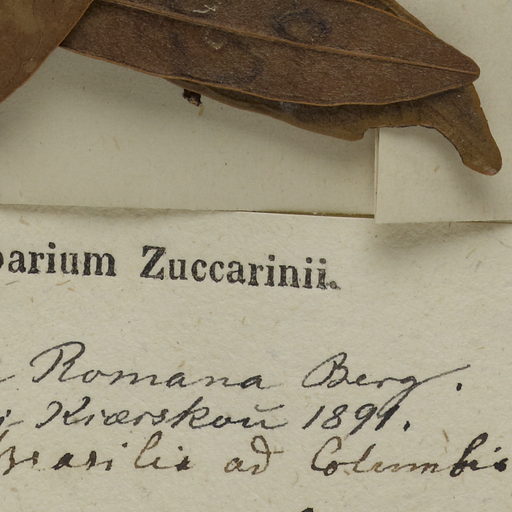 barium Zuccarinii.
Romana Berg.
Kiærskoū 1891.
Brasilia ad Columbia